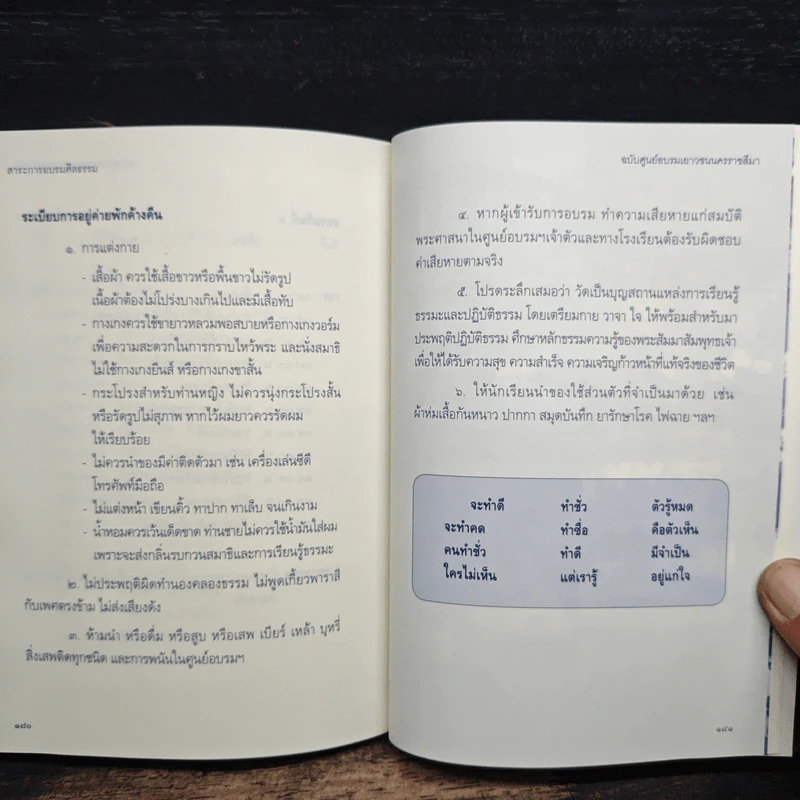 สาระการอบรมศีลธรรม
ระเบียบการอยู่ค่ายพักค้างคืน
๑. การแต่งกาย
- เสื้อผ้า ควรใช้เสื้อขาวหรือพื้นขาวไม่รัดรูป
เนื้อผ้าต้องไม่โปร่งบางเกินไปและมีเสื้อทับ
- กางเกงควรใช้ขายาวหลวมพอสบายหรือกางเกงวอร์ม
เพื่อความสะดวกในการกราบไหว้พระ และนั่งสมาธิ
ไม่ใช้กางเกงยีนส์ หรือกางเกงขาสั้น
- กระโปรงสำหรับท่านหญิง ไม่ควรนุ่งกระโปรงสั้น
หรือรัดรูปไม่สุภาพ หากไว้ผมยาวควรรัดผม
ให้เรียบร้อย
- ไม่ควรนำของมีค่าติดตัวมา เช่น เครื่องเล่นซีดี
โทรศัพท์มือถือ
- ไม่แต่งหน้า เขียนคิ้ว ทาปาก ทาเล็บ จนเกินงาม
- น้ำหอมควรเว้นเด็ดขาด ท่านชายไม่ควรใช้น้ำมันใส่ผม
เพราะจะส่งกลิ่นรบกวนสมาธิและการเรียนรู้ธรรมะ
๒. ไม่ประพฤติผิดทำนองคลองธรรม ไม่พูดเกี้ยวพาราสี
กับเพศตรงข้าม ไม่ส่งเสียงดัง
๓. ห้ามนำ หรือดื่ม หรือสูบ หรือเสพ เบียร์ เหล้า บุหรี่
สิ่งเสพติดทุกชนิด และการพนันในศูนย์อบรมฯ
๑๘๐
ฉบับศูนย์อบรมเยาวชนนครราชสีมา
๔. หากผู้เข้ารับการอบรม ทำความเสียหายแก่สมบัติ
พระศาสนาในศูนย์อบรมฯเจ้าตัวและทางโรงเรียนต้องรับผิดชอบ
ค่าเสียหายตามจริง
๕. โปรดระลึกเสมอว่า วัดเป็นบุญสถานแหล่งการเรียนรู้
ธรรมะและปฏิบัติธรรม โดยเตรียมกาย วาจา ใจ ให้พร้อมสำหรับมา
ประพฤติปฏิบัติธรรม ศึกษาหลักธรรมความรู้ของพระสัมมาสัมพุทธเจ้า
เพื่อให้ได้รับความสุข ความสำเร็จ ความเจริญก้าวหน้าที่แท้จริงของชีวิต
๖. ให้นักเรียนนำของใช้ส่วนตัวที่จำเป็นมาด้วย เช่น
ผ้าห่มเสื้อกันหนาว ปากกา สมุดบันทึก ยารักษาโรค ไฟฉาย ฯลฯ
จะทำดี ทำชั่ว ตัวรู้หมด
จะทำคด ทำซื่อ คือตัวเห็น
คนทำชั่ว ทำดี มีจำเป็น
ใครไม่เห็น แต่เรารู้ อยู่แก่ใจ
๑๘๑